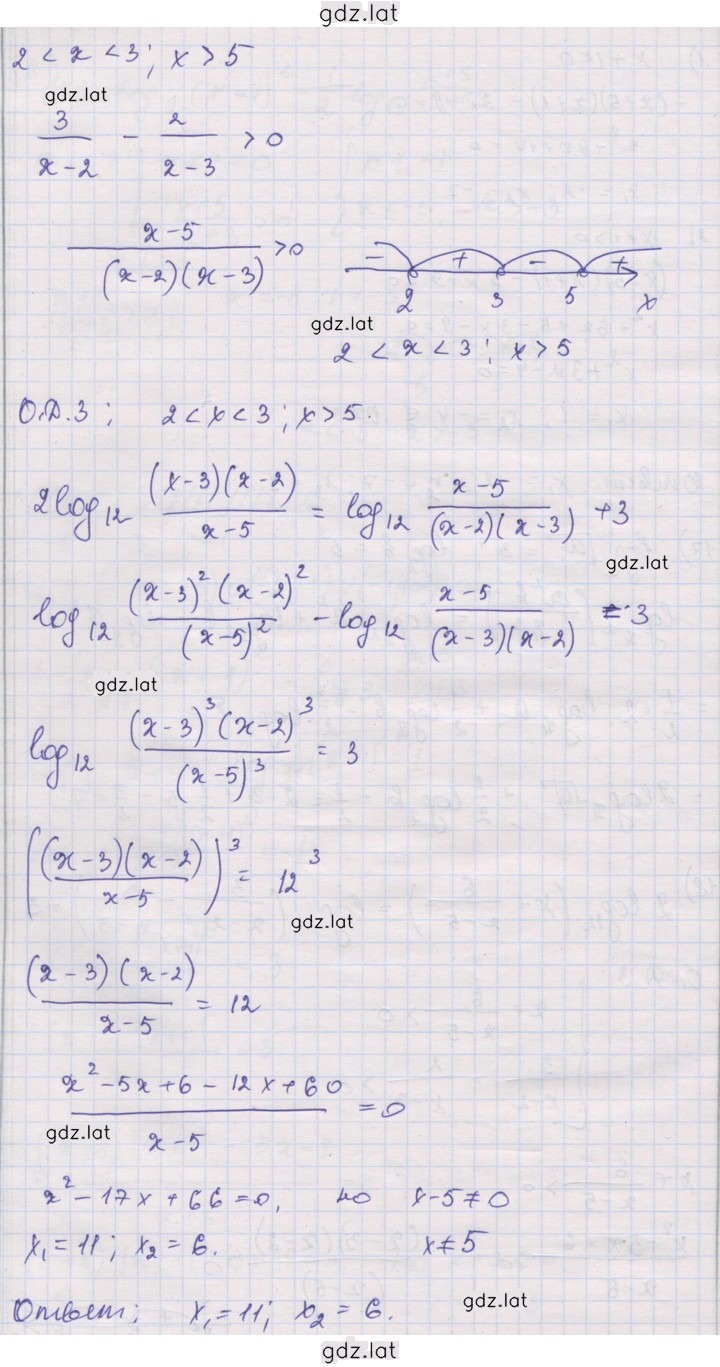 gdz.lat
2 < x < 3; x > 5
gdz.lat
3/(x-2) - 2/(x-3) > 0
(x-5)/((x-2)(x-3)) > 0
- + - +
2 3 5 x
gdz.lat
2 < x < 3; x > 5
О.Д.З; 2 < x < 3; x > 5.
2log₁₂ ((x-3)(x-2))/(x-5) = log₁₂ (x-5)/((x-2)(x-3)) + 3
gdz.lat
log₁₂ ((x-3)²(x-2)²)/((x-5)²) - log₁₂ (x-5)/((x-3)(x-2)) = 3
gdz.lat
log₁₂ ((x-3)³(x-2)³)/((x-5)³) = 3
(((x-3)(x-2))/(x-5))³ = 12³
gdz.lat
((x-3)(x-2))/(x-5) = 12
(x²-5x+6-12x+60)/(x-5) = 0
gdz.lat
x²-17x+66=0, но x-5≠0
x₁=11; x₂=6. x≠5
gdz.lat
Ответ: x₁=11; x₂=6.
gdz.lat